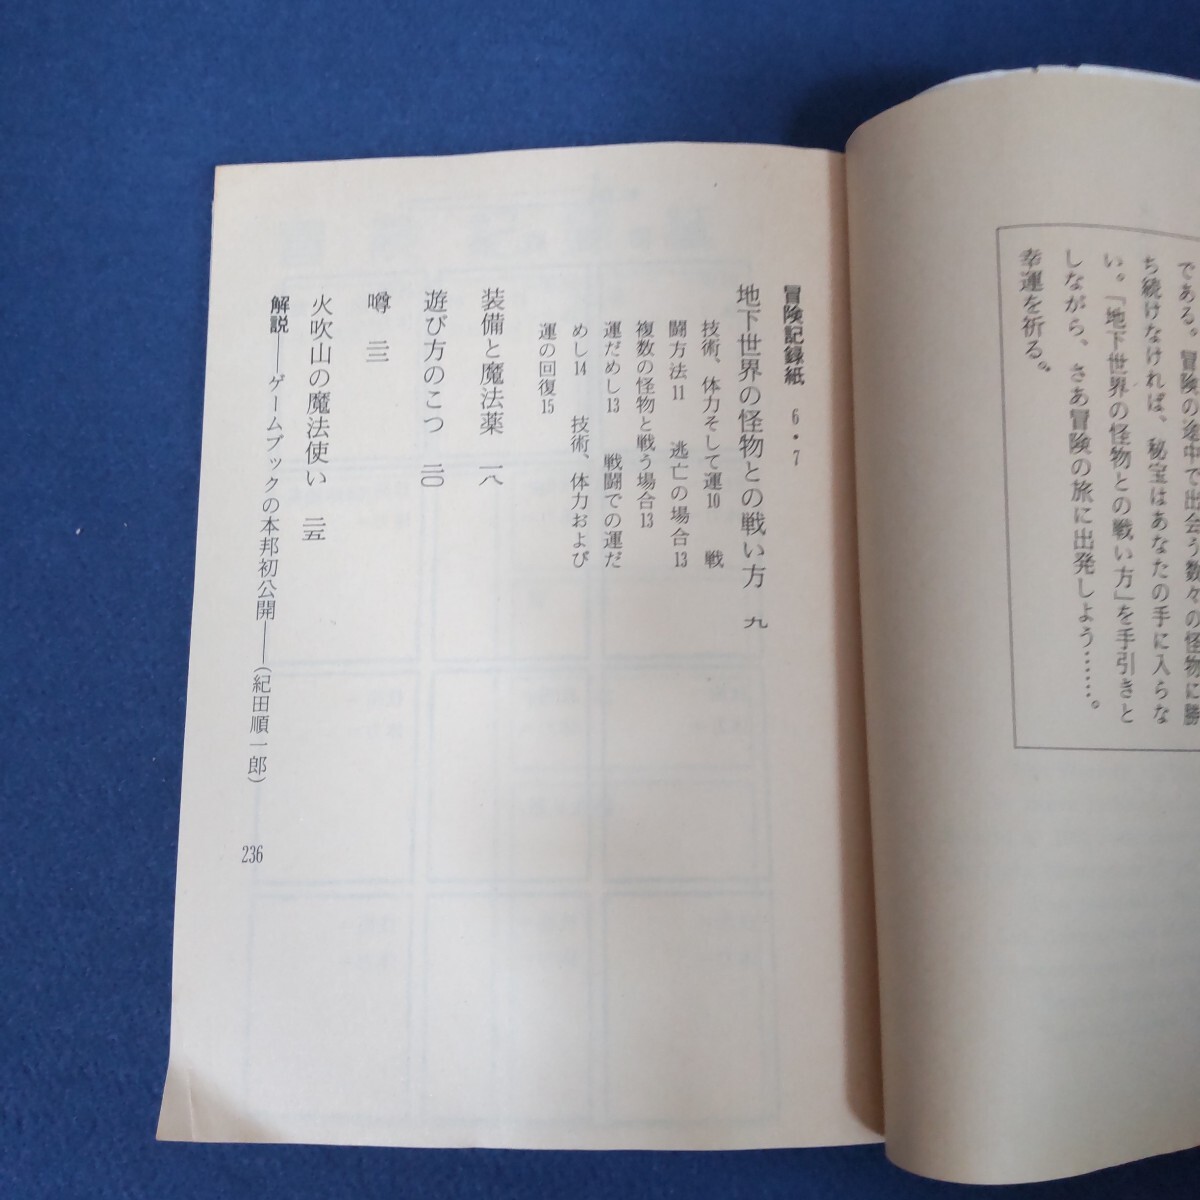 である。冒険の途中で出会う数々の怪物に勝
ち続けなければ、秘宝はあなたの手に入らな
い。「地下世界の怪物との戦い方」を手引きと
しながら、さあ冒険の旅に出発しよう……。
幸運を祈る。
冒険記録紙 6・7
地下世界の怪物との戦い方 九
技術、体力そして運10 戦
闘方法11 逃亡の場合13
複数の怪物と戦う場合13
運だめし13 戦闘での運だ
めし14 技術、体力および
運の回復15
装備と魔法薬 一八
遊び方のこつ 二〇
噂 二三
火吹山の魔法使い 二五
解説——ゲームブックの本邦初公開——(紀田順一郎) 236